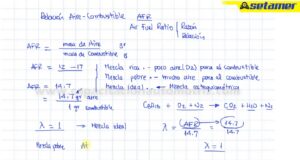 Asetamer
Relación Aire-Combustible AFR
Air Fuel Ratio Razón
Relación
AFR = masa de Aire gr
masa de Combustible gr
AFR = 12 - 17 Mezcla rica .. poco aire (O2) para el combustible
Mezcla pobre .. mucho aire para el combustible
AFR = 14.7 Mezcla ideal .. Mezcla estequiométrica
14.7 gr aire
1 gr combustible
+ O2 + N2 → CO2 + H2O + N2
λ = 1 → Mezcla ideal
λ = AFR / 14.7 = 14.7 / 14.7
λ = 1
Mezcla pobre